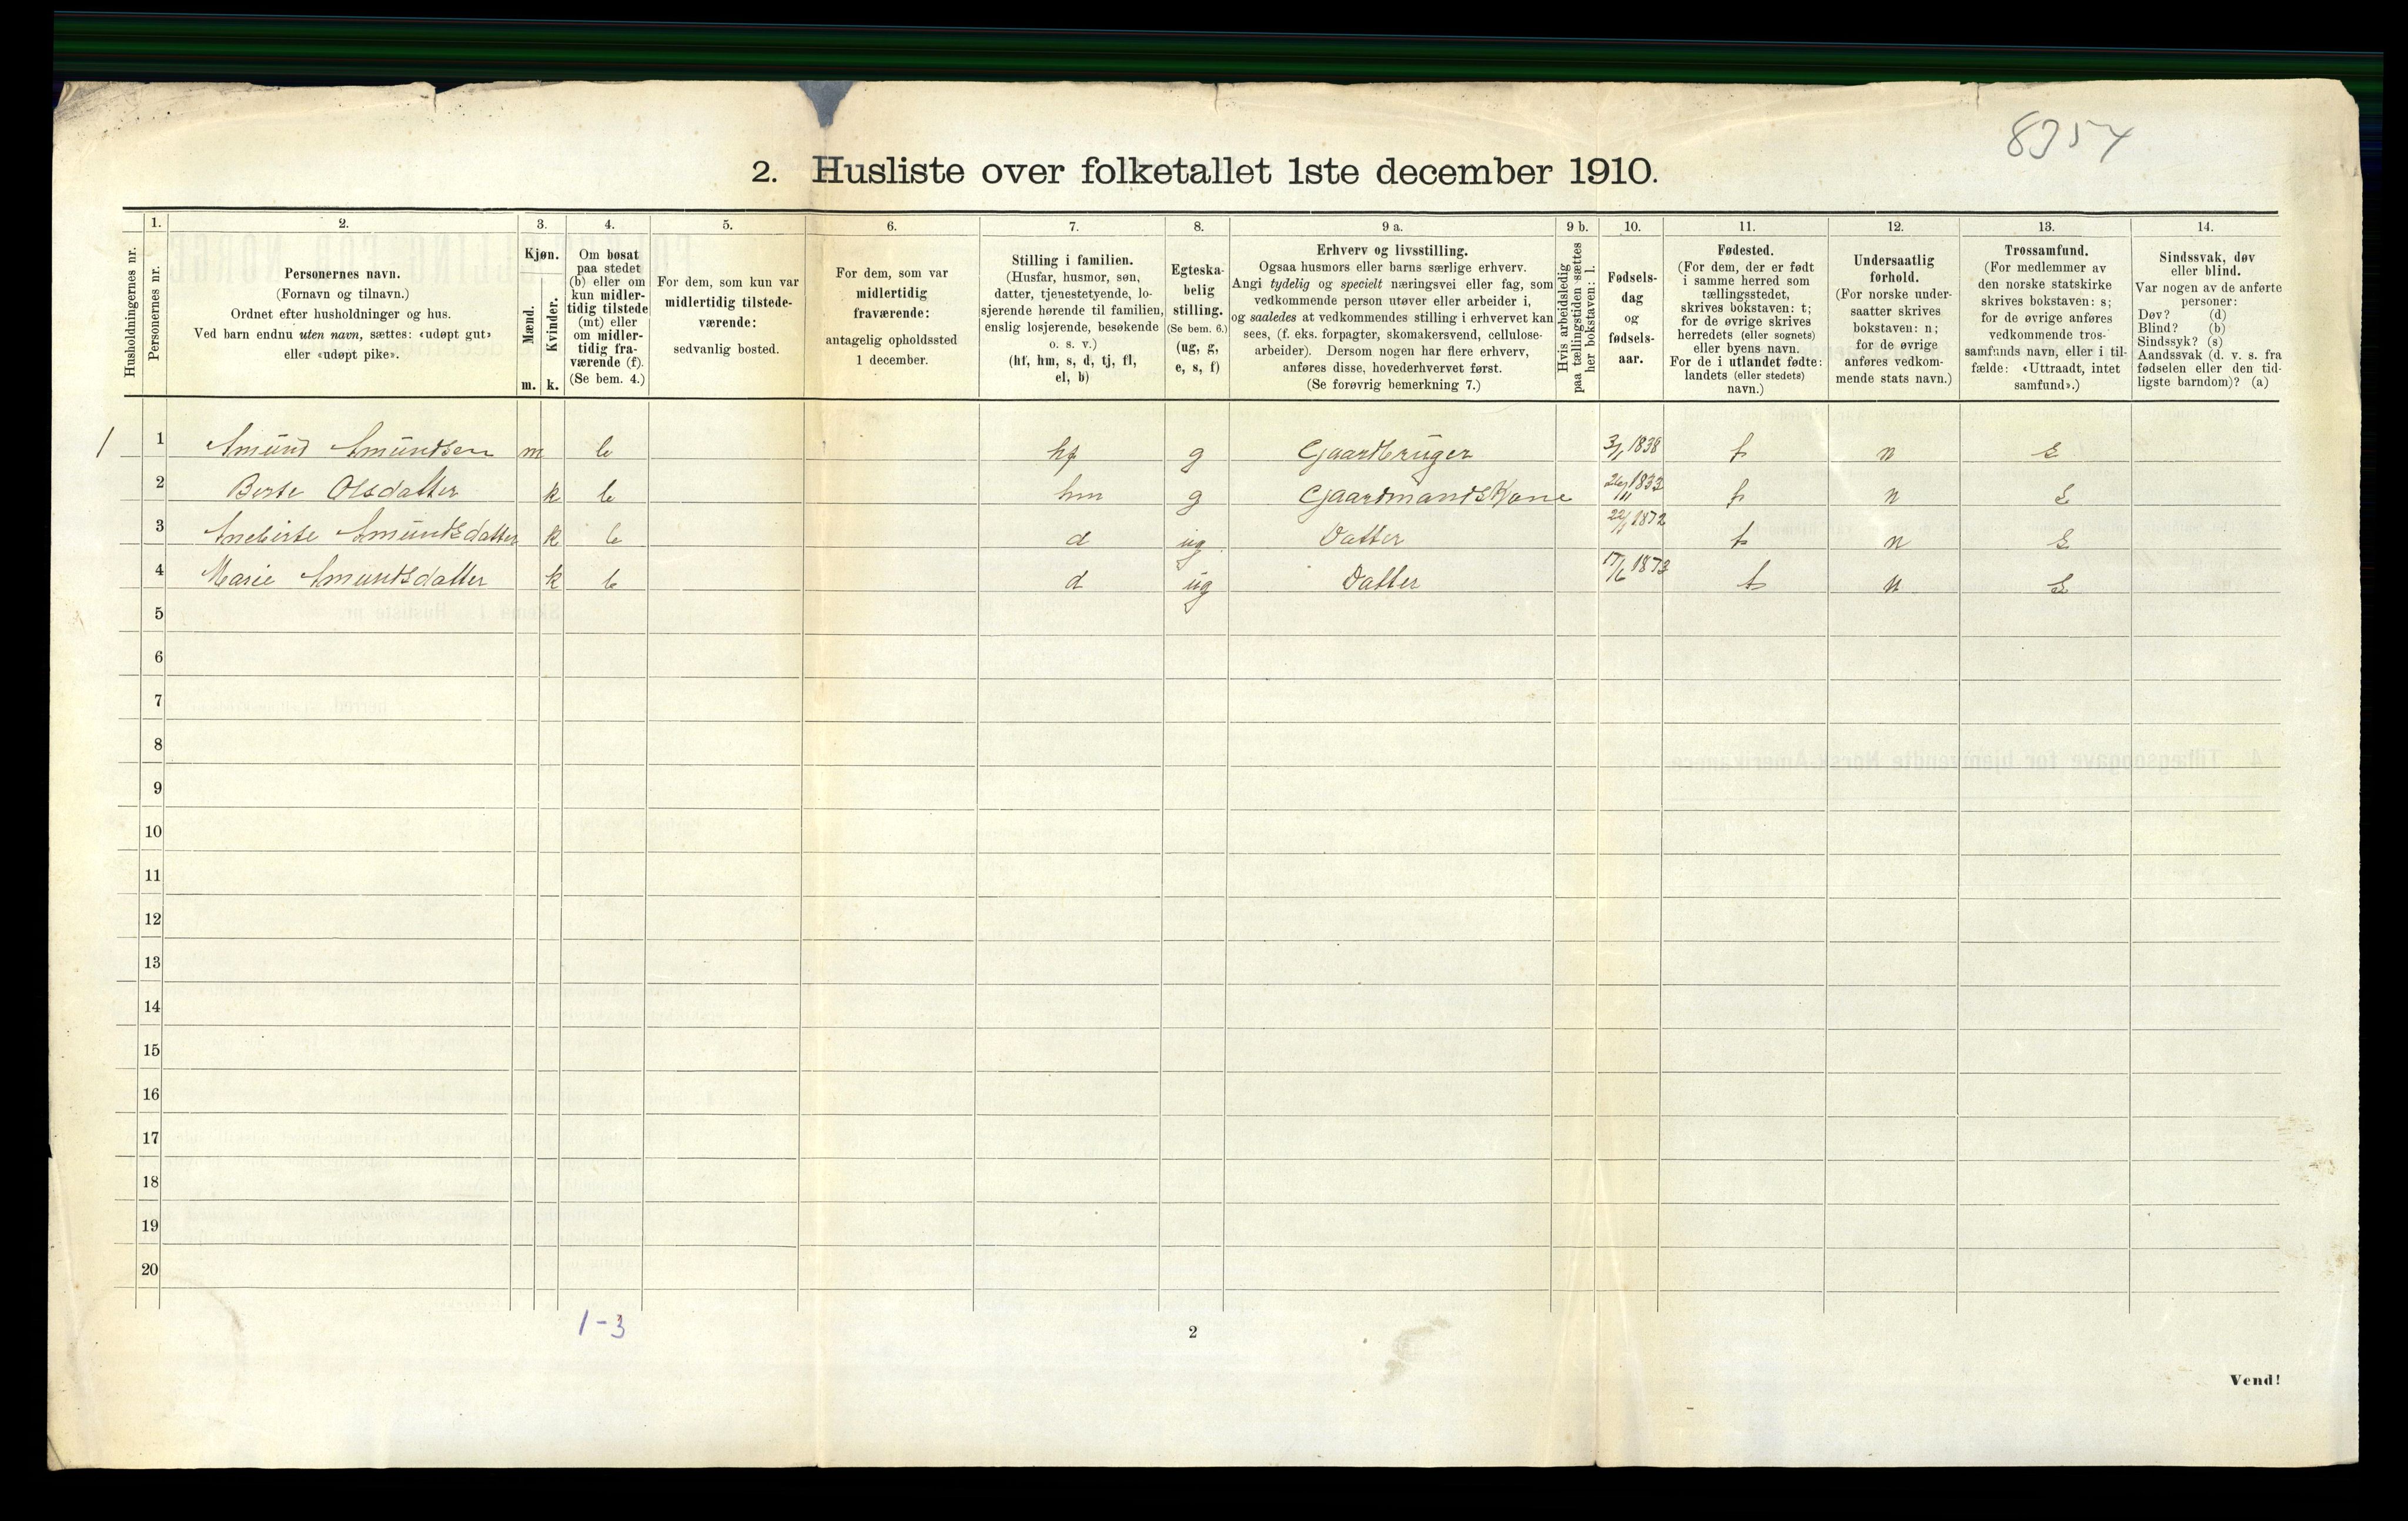 8954
2. Husliste over folketallet 1ste december 1910.
Husholdningernes nr.
1.
Personernes nr.
2.
Personernes navn.
(Fornavn og tilnavn.)
Ordnet efter husholdninger og hus.
Ved barn endnu uten navn, sættes: «udøpt gut»
eller «udøpt pike».
3.
Kjøn.
Mænd.
Kvinder.
m. k.
4.
Om bosat
paa stedet
(b) eller om
kun midler-
tidig tilstede
(mt) eller
om midler-
tidig fra-
værende (f).
(Se bem. 4.)
5.
For dem, som kun var
midlertidig tilstede-
værende:
sedvanlig bosted.
6.
For dem, som var
midlertidig
fraværende:
antagelig opholdssted
1 december.
7.
Stilling i familien.
(Husfar, husmor, søn,
datter, tjenestetyende, lo-
sjerende hørende til familien,
enslig losjerende, besøkende
o. s. v.)
(hf, hm, s, d, tj, fl,
el, b)
8.
Egteska-
belig
stilling.
(Se bem. 6.)
(ug, g,
e, s, f)
9 a.
Erhverv og livsstilling.
Ogsaa husmors eller barns særlige erhverv.
Angi tydelig og specielt næringsvei eller fag, som
vedkommende person utøver eller arbeider i,
og saaledes at vedkommendes stilling i erhvervet kan
sees, (f. eks. forpagter, skomakersvend, cellulose-
arbeider). Dersom nogen har flere erhverv,
anføres disse, hovederhvervet først.
(Se forøvrig bemerkning 7.)
9 b.
Hvis arbeidsledig
paa tællingstiden sættes
her bokstaven: l.
10.
Fødsels-
dag
og
fødsels-
aar.
11.
Fødested.
(For dem, der er født
i samme herred som
tællingsstedet,
skrives bokstaven: t;
for de øvrige skrives
herredets (eller sognets)
eller byens navn.
For de i utlandet fødte:
landets (eller stedets)
navn.)
12.
Undersaatlig
forhold.
(For norske under-
saatter skrives
bokstaven: n;
for de øvrige
anføres vedkom-
mende stats navn.)
13.
Trossamfund.
(For medlemmer av
den norske statskirke
skrives bokstaven: s;
for de øvrige anføres
vedkommende tros-
samfunds navn, eller i til-
fælde: «Uttraadt, intet
samfund».)
14.
Sindssvak, døv
eller blind.
Var nogen av de anførte
personer:
Døv? (d)
Blind? (b)
Sindssyk? (s)
Aandssvak (d. v. s. fra
fødselen eller den tid-
ligste barndom)? (a)
1 1 Amund Amundsen m b hf g Gaardbruger 3/1 1838 t n s
2 Berte Olsdatter k b hm g Gaardmands Kone 26/11 1833 t n s
3 Aneberte Amundsdatter k b d ug Datter 22/1 1872 t n s
4 Marie Amundsdatter k b d ug Datter 17/6 1873 t n s
5
6
7
8
9
10
11
12
13
14
15
16
17
18
19
20
1-3
2
Vend!